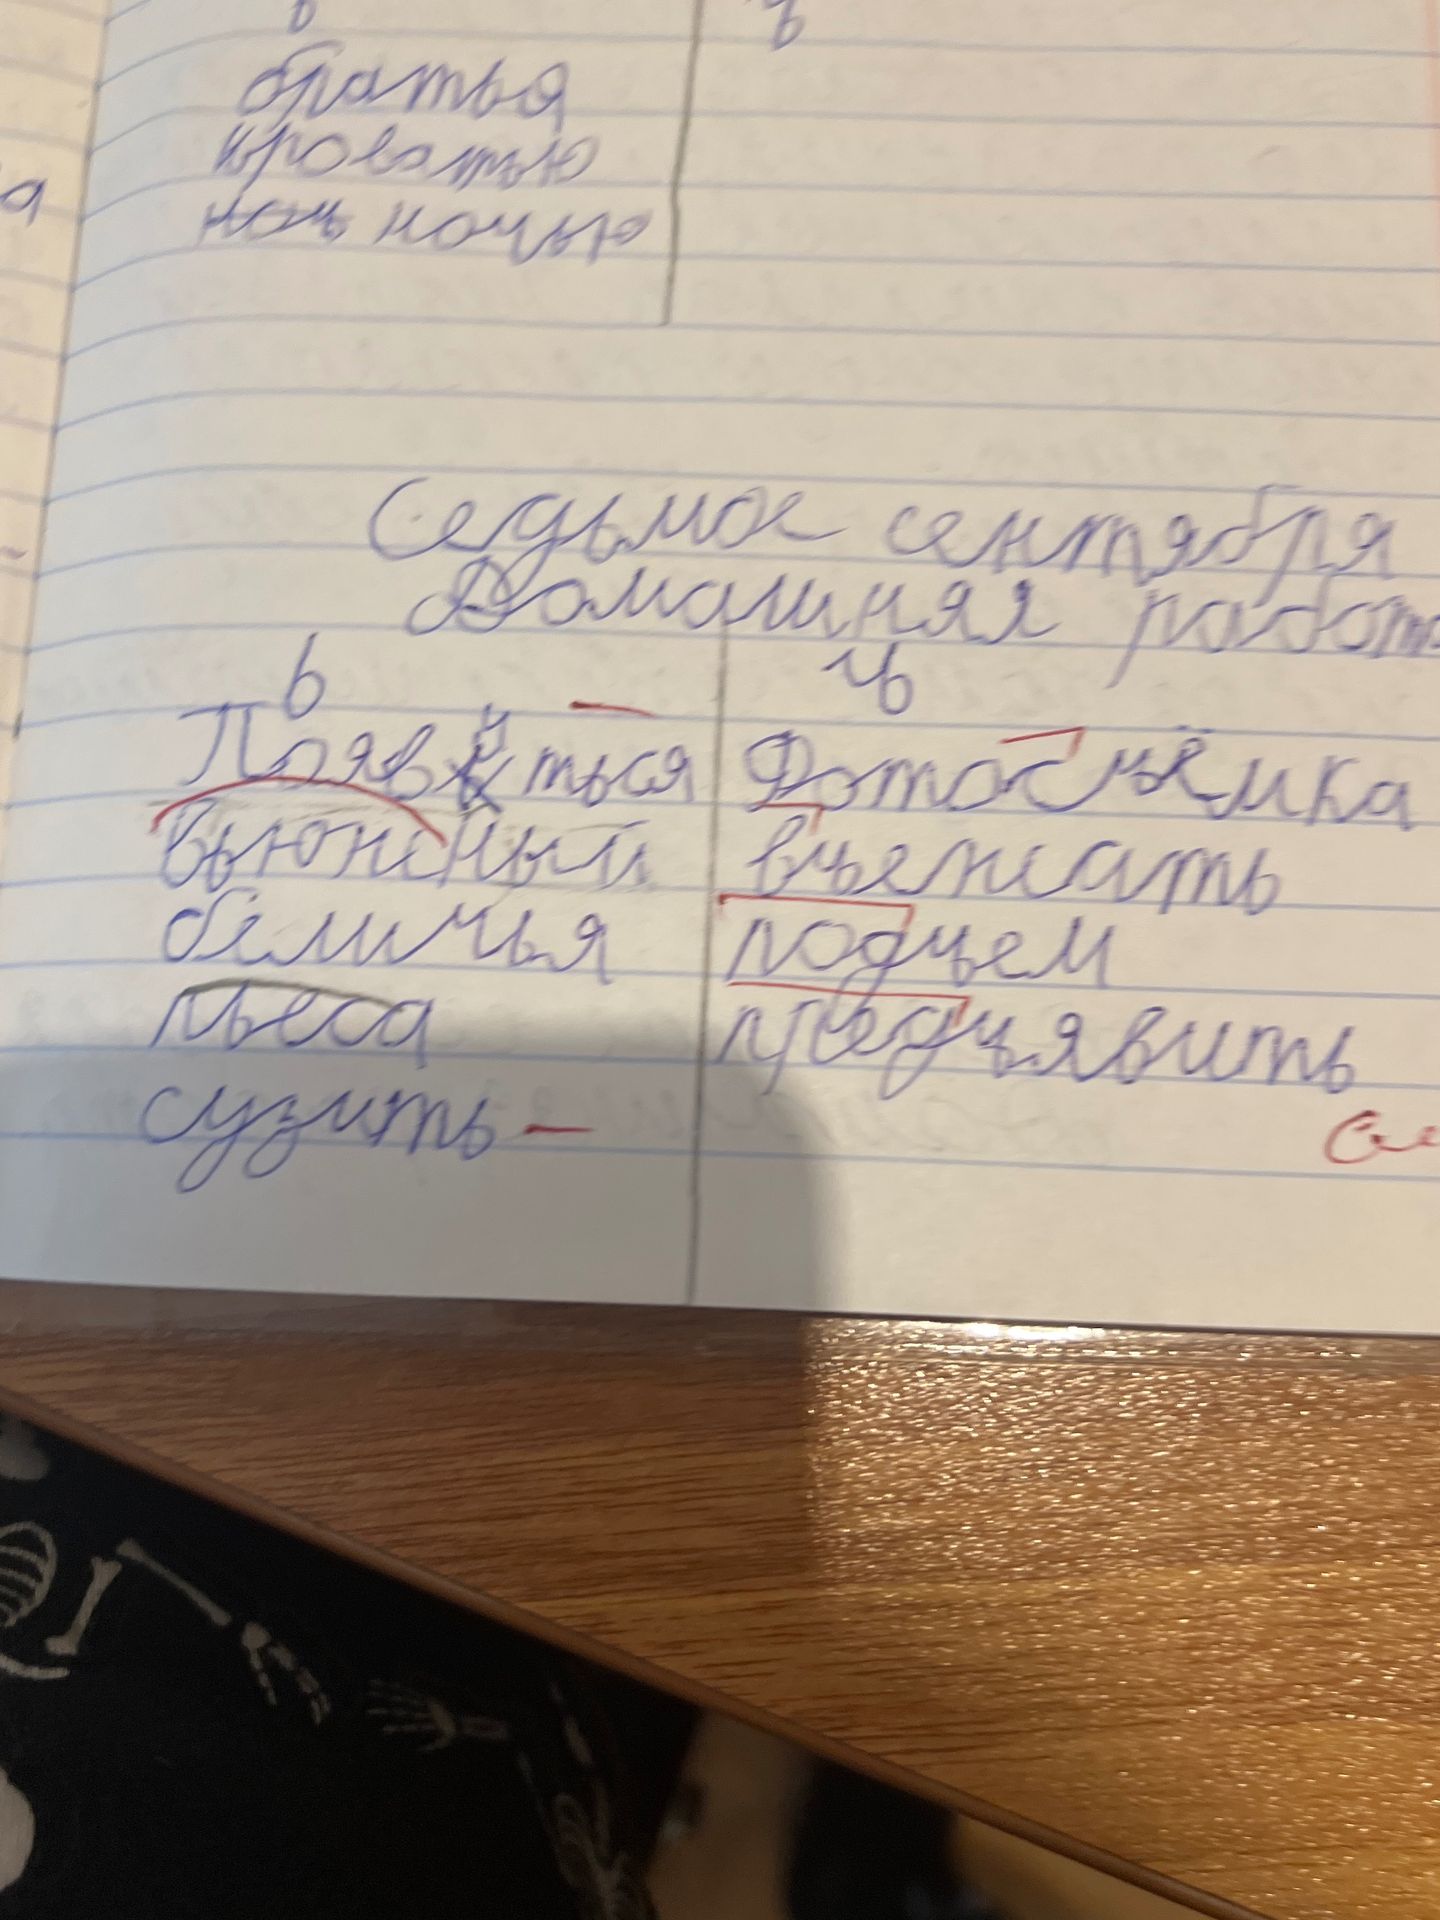 ь ъ
братья
кроватью
ноч ночью
а
Седьмое сентября
Домашняя работ
ь ъ
Появиться Фотосъёмка
вьюжный въезжать
беличья подъем
пьеса предъявить
сузить –